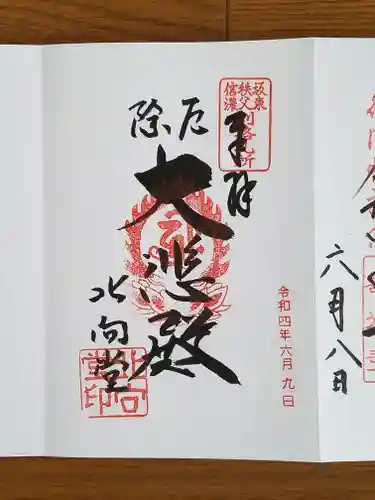 坂東
秩父
信濃
別格札所
奉拝
厄除
大悲殿
北向堂
北向堂印
令和四年六月九日
六月八日